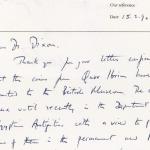 Our reference
Date 15.2.9
Dear Dr. Dixon.
Thank you for your letter confirm
that the coins from Qasr Ibrim have
to the British Museum. The
were until recently in the Department
Antiquities with a view to
of them in the permanent